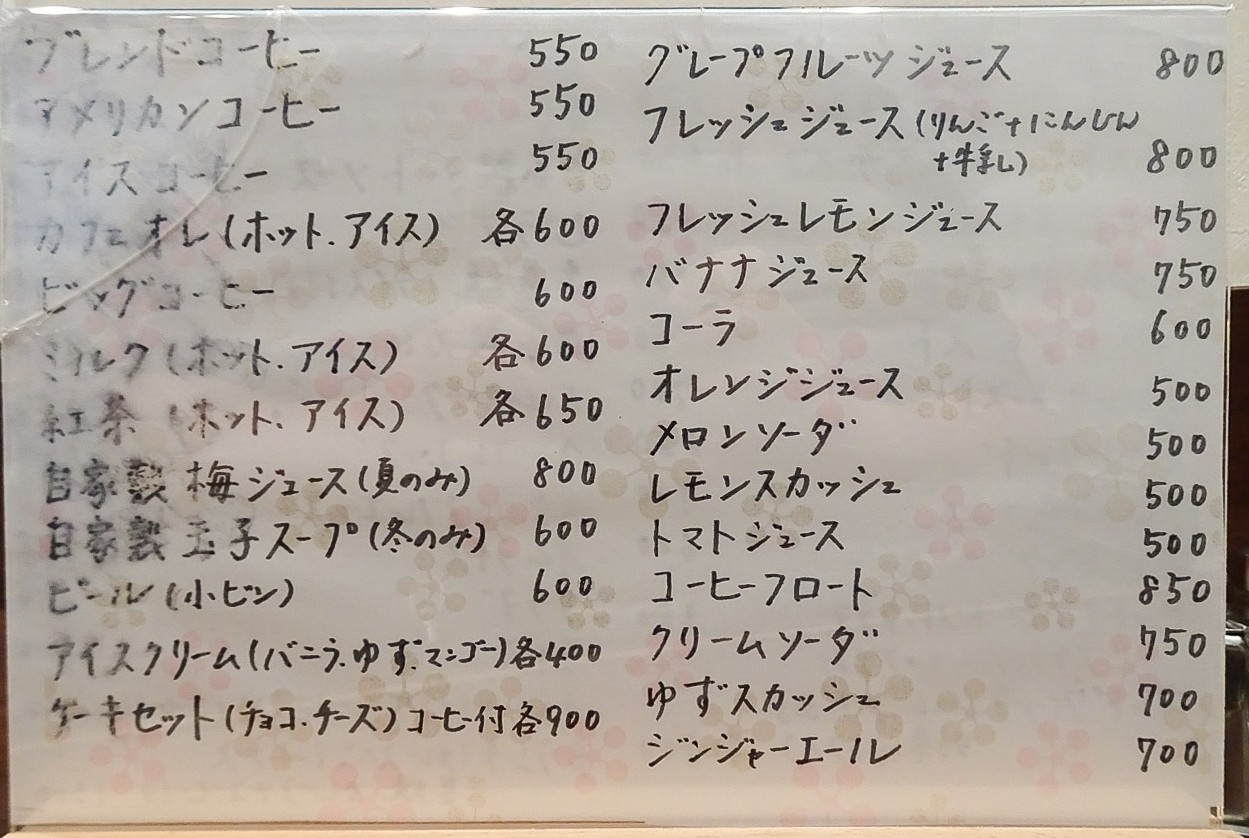 ブレンドコーヒー 550
アメリカンコーヒー 550
アイスコーヒー 550
カフェオレ(ホット.アイス) 各600
ビッグコーヒー 600
ミルク(ホット.アイス) 各600
紅茶(ホット.アイス) 各650
自家製 梅ジュース(夏のみ) 800
自家製 玉子スープ(冬のみ) 600
ビール(小ビン) 600
アイスクリーム(バニラ.ゆず.マンゴー)各400
ケーキセット(チョコ.チーズ)コーヒー付各900
グレープフルーツジュース 800
フレッシュジュース(りんご+にんじん
+牛乳) 800
フレッシュレモンジュース 750
バナナジュース 750
コーラ 600
オレンジジュース 500
メロンソーダ 500
レモンスカッシュ 500
トマトジュース 500
コーヒーフロート 850
クリームソーダ 750
ゆずスカッシュ 700
ジンジャーエール 700